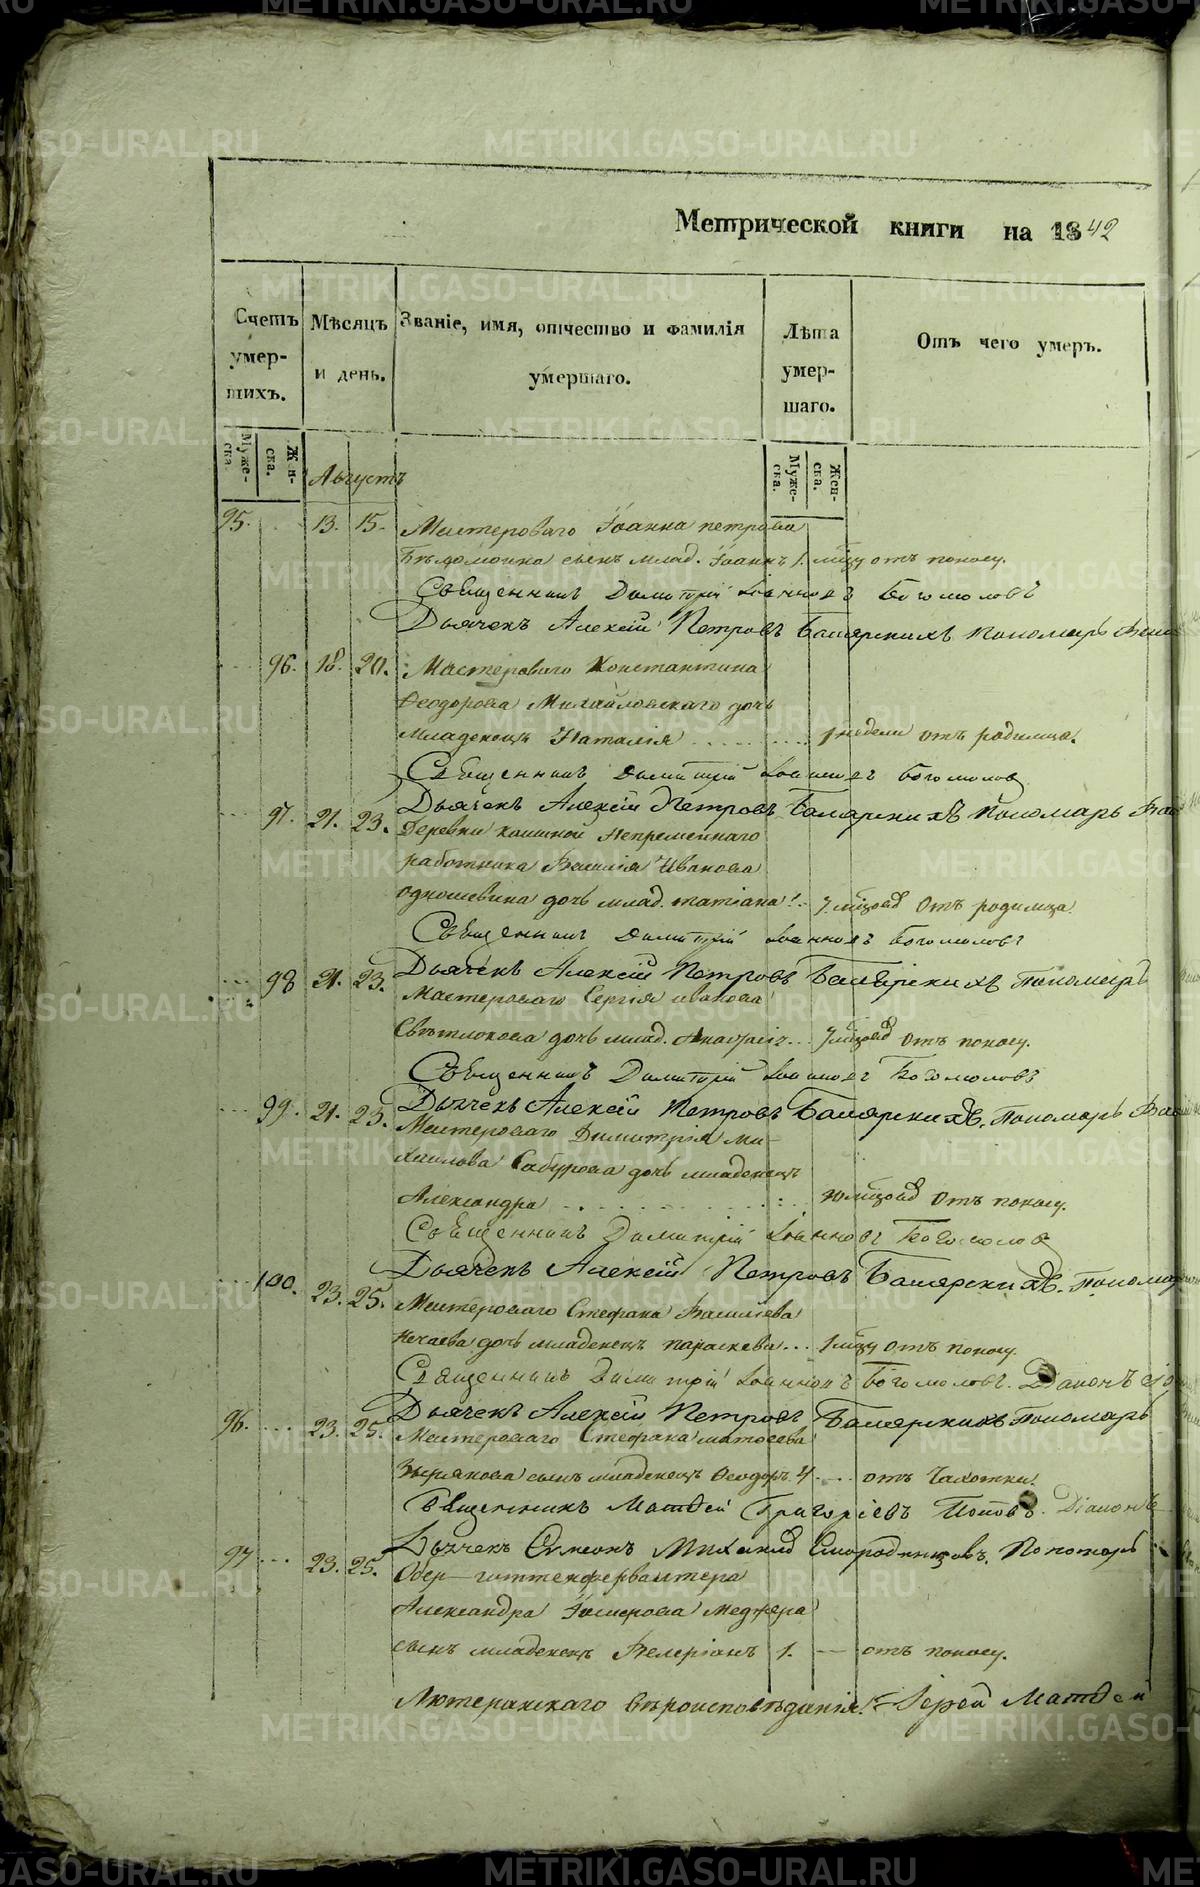 Метрической книги на 1842
Счетъ умер-шихъ. Мѣсяцъ и день. Званіе, имя, отчество и фамилія умершаго. Лѣта умер-шаго. Отъ чего умеръ.
Муже-ска. Жен-ска. Муже-ска. Жен-ска.
Августъ
95. 13. 15. Мастероваго Іоанна Петрова
сынъ млад. Іоаннъ 1. мцу отъ поносу.
Священникъ Димитрій Іоанновъ Богомоловъ
Дьячекъ Алексій Петровъ Баярскихъ Пономарь
96. 18. 20. Мастероваго Константина
Ѳеодорова Михайловскаго дочь
Младенецъ Наталія 1 недели отъ родимца.
Священникъ Димитрій Іоанновъ Богомоловъ
Дьячекъ Алексій Петровъ Баярскихъ Пономарь
97. 21. 23. Деревни непременнаго
работника Василія Иванова
дочь млад. татіана 7 мцовъ Отъ родимца.
Священникъ Димитрій Іоанновъ Богомоловъ
Дьячекъ Алексій Петровъ Баярскихъ Пономарь
98 21. 23. Мастероваго Сергія иванова
дочь млад. Анастасія 7 мцовъ отъ поносу.
Священникъ Димитрій Іоанновъ Богомоловъ
Дьячекъ Алексій Петровъ Баярскихъ. Пономарь
99. 21. 23. Мастероваго Димитрія Ми-
хаилова Сабурова дочь младенецъ
Александра 10 мцовъ Отъ поносу.
Священникъ Димитрій Іоанновъ Богомоловъ
Дьячекъ Алексій Петровъ Баярскихъ. Пономарь
100. 23. 25. Мастероваго Стефана Василіева
Нечаева дочь младенецъ параскева 1 мцу отъ поносу.
Священникъ Димитрій Іоанновъ Богомоловъ. Діаконъ
Дьячекъ Алексій Петровъ Баярскихъ Пономарь
96. 23. 25. Мастероваго Стефана матѳеева
Зырянова сынъ младенецъ Ѳеодоръ 4 отъ Чахотки.
Священникъ Матѳей Григоріевъ Поповъ. Діаконъ
Дьячекъ Симеонъ Смородинцовъ. Пономарь
97 23. 25. Обер-гиттенфервалтера
Александра
сынъ младенецъ Валеріанъ 1. — отъ поносу.
Лютеранскаго вѣроисповѣданія. Іерей Матѳей
METRIKI.GASO-URAL.RU